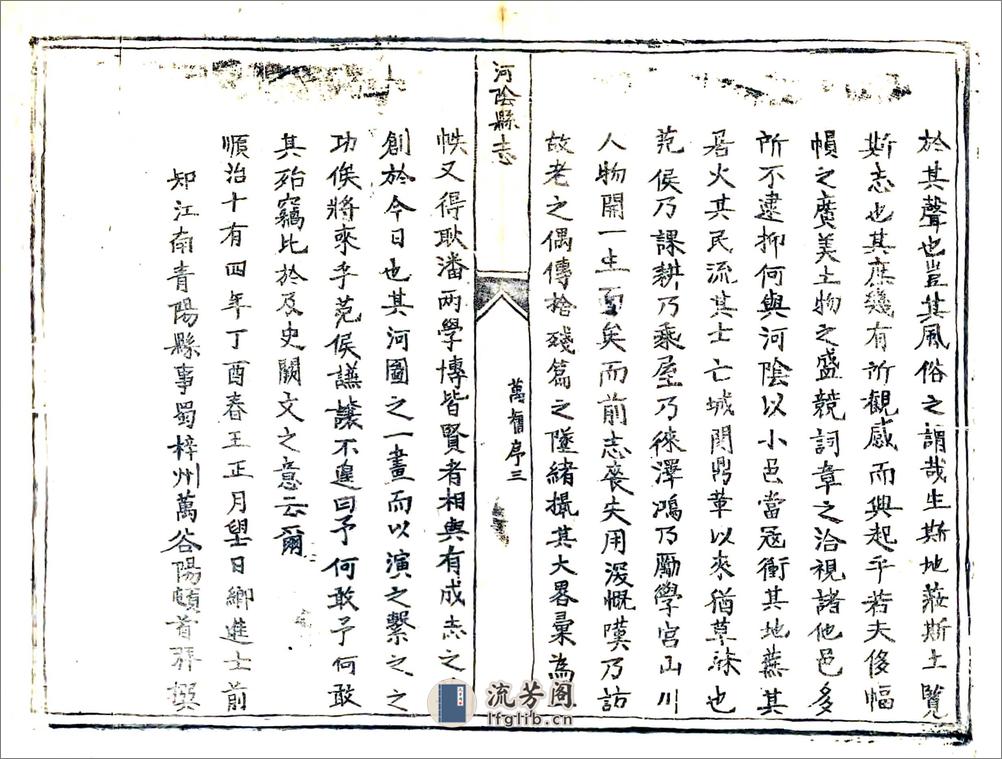 於其聲也豈其風俗之謂哉生斯地蒞斯土覽
斯志也其庶幾有所觀感而興起乎若夫侈幅
幀之廣美土物之盛競詞章之洽視諸他邑多
所不逮抑何與河陰以小邑當冦衝其地蕪其
居火其民流其士亡城閴鼎革以來猶草昧也
范侯乃課耕乃乘屋乃徠澤鴻乃勵學宮山川
人物開一生靣矣而前志喪失用深慨嘆乃訪
故老之偶傳拾殘篇之墜緒撮其大畧彙為
帙又得耿潘兩學博皆賢者相與有成志之
創於今日也其河圖之一畫而以演之繫之之
功俟將來乎范侯謙讓不遑曰予何敢予何敢
其殆竊比於及史闕文之意云爾
順治十有四年丁酉春王正月望日鄉進士前
知江南青陽縣事蜀梓州萬谷陽頓首拜撰
河陰縣志
萬舊序三
流芳阁
lfglib.cn